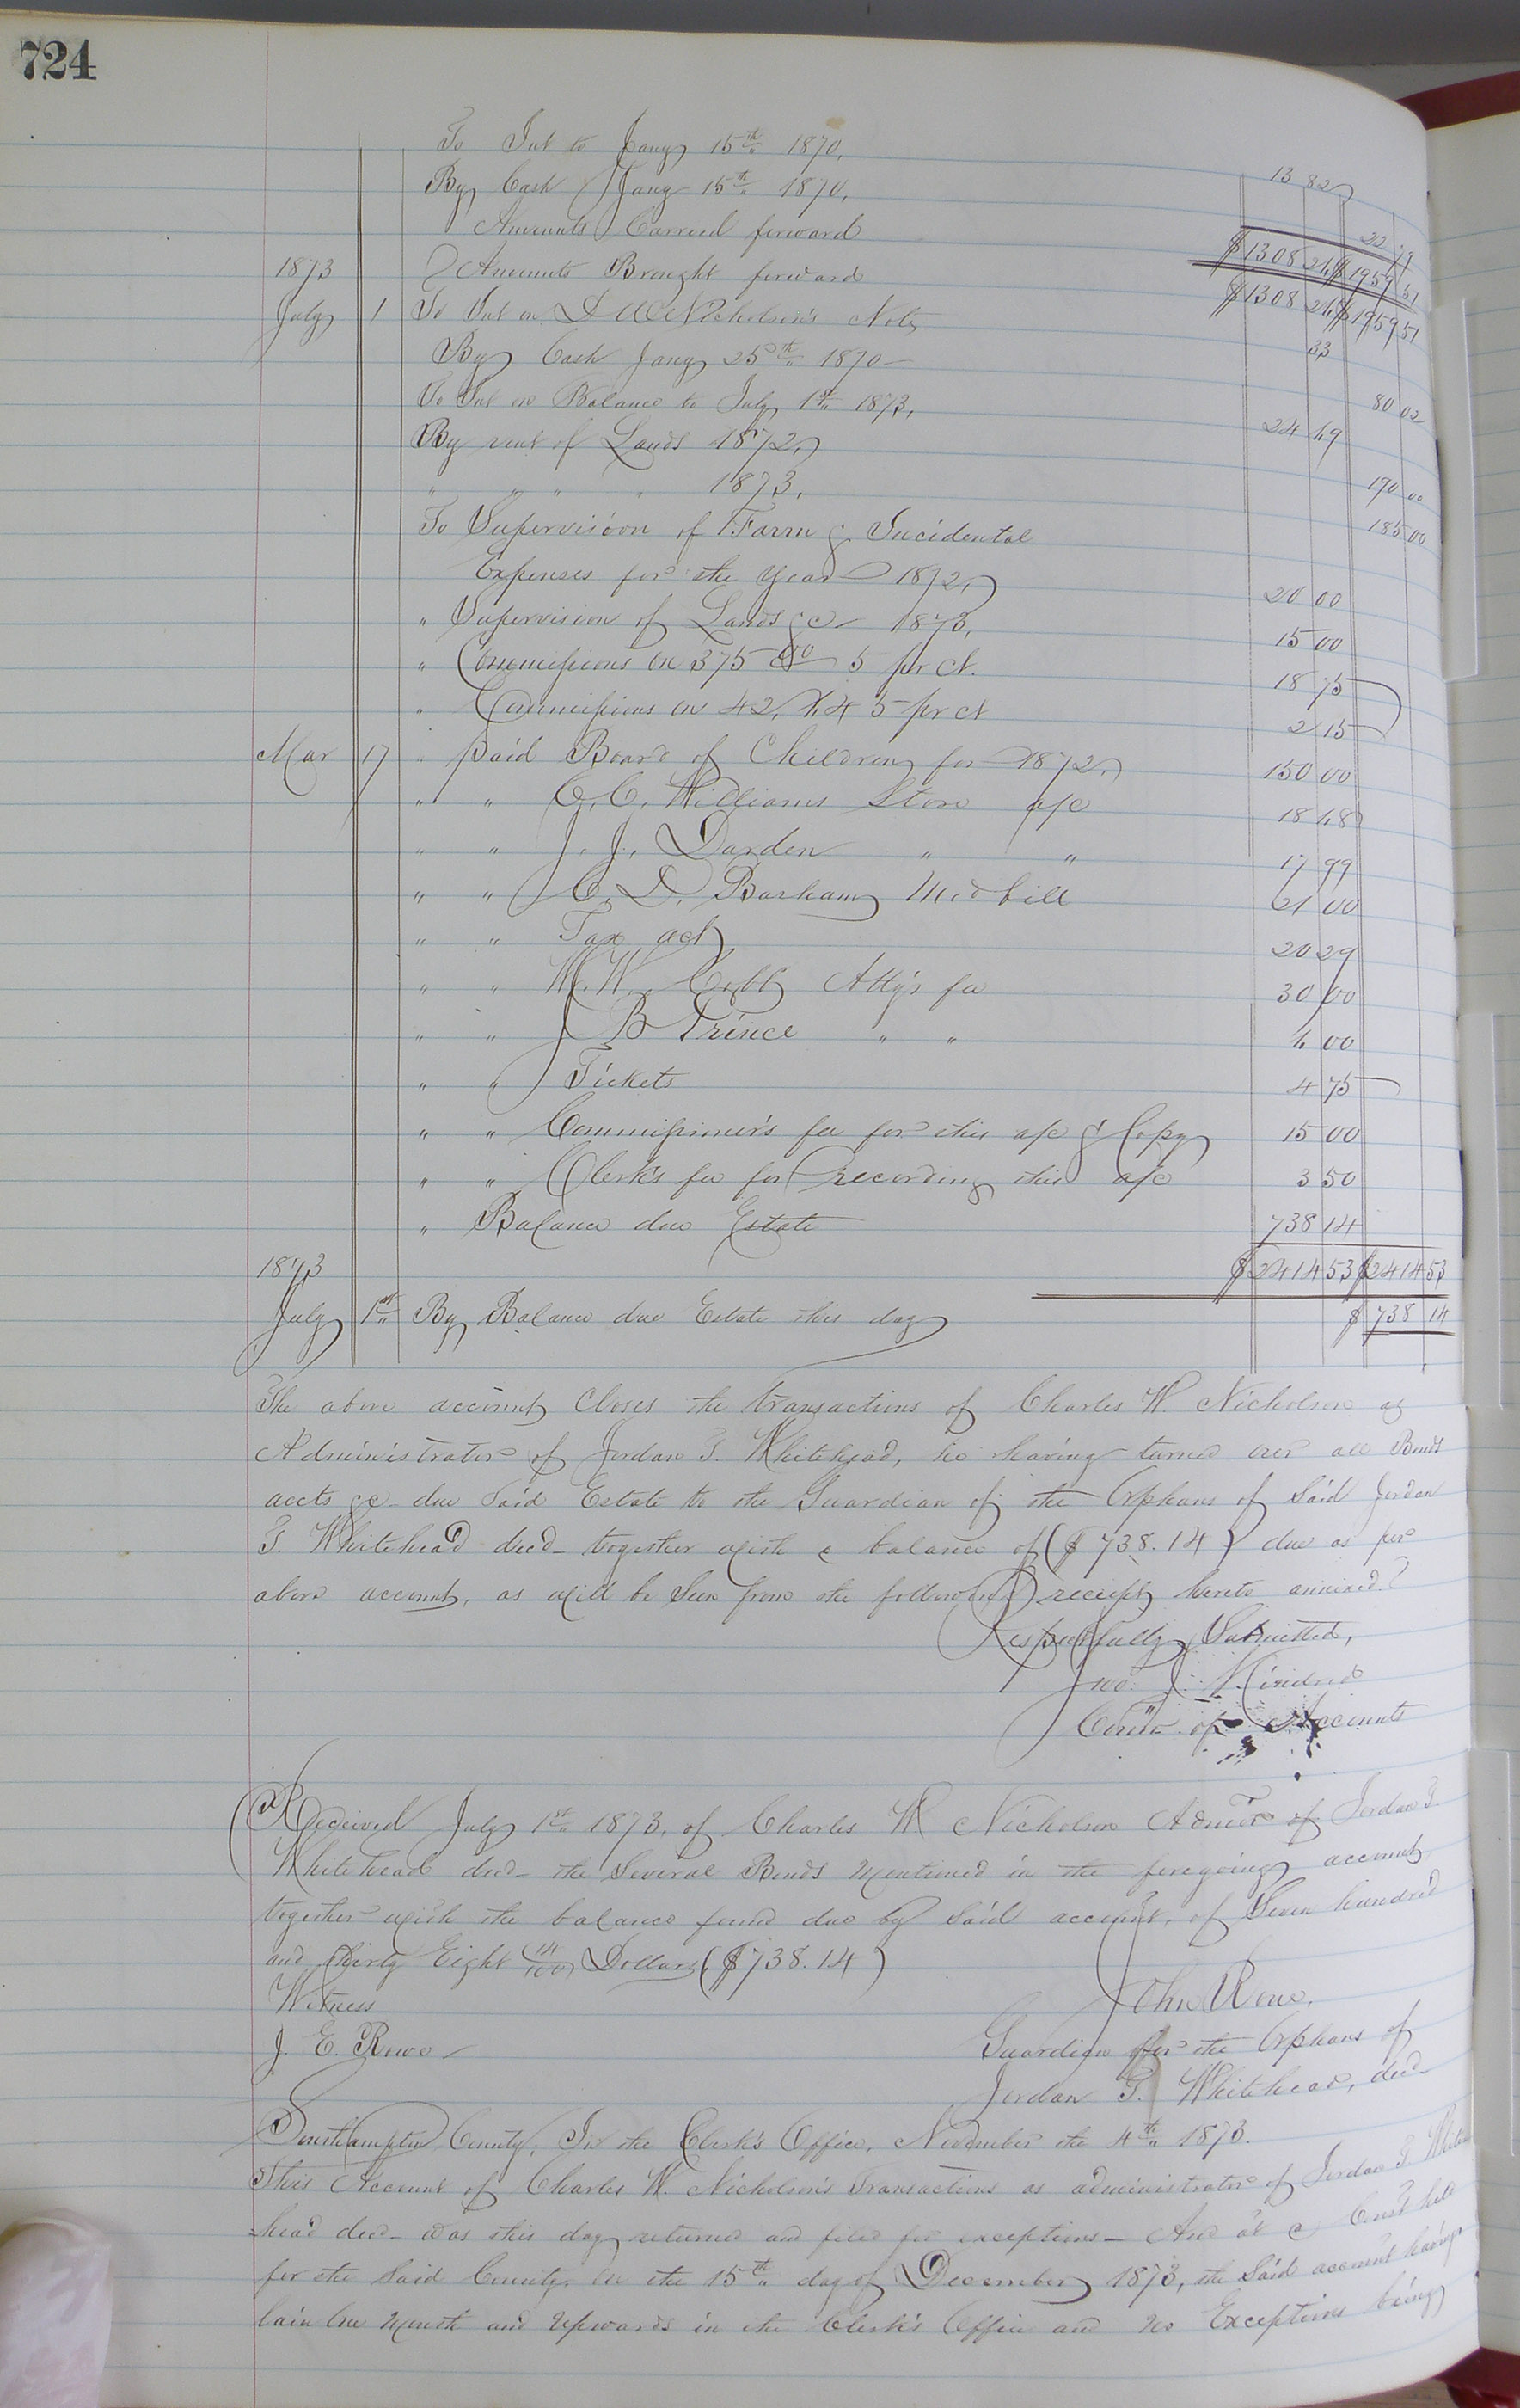 724
To Int to Jany 15th 1870, 13 82
By Cash Jany 15th 1870, 22
Amounts Carried forward $1308 $1959 51
1873 Amounts Brought forward $1308 $1959 51
July 1 To Int on Nicholson's Note 33
By Cash Jany 25th 1870 — 80 02
To Int on Balance to July 1st 1873, 24 69
By rent of Lands 1872, 190 00
" " " " 1873, 185 00
To Supervision of Farm & Incidental
Expenses for the Year 1872, 20 00
" Supervision of Lands &c 1873, 15 00
" Commissions on 375 00 5 pr ct. 18 75
" Commissions on 5 pr ct 2 15
Mar 17 " paid Board of Children for 1872, 150 00
" " C. C. Williams Store a/c 18 68
" " J. J. Darden " " 17 99
" " C. D. Barham Med bill 61 00
" " Tax act 20 29
" " W. W. Cobb Atty's fee 30 00
" " J B Prince " " 00
" " Tickets 4 75
" " Commissioner's fee for this a/c & Copy 15 00
" " Clerk's fee for recording this a/c 3 50
" Balance due Estate 738 14
1873 $2414 53 $2414 53
July 1st By Balance due Estate this day $738 14
The above account Closes the transactions of Charles W. Nicholson as
Administrator of Jordan T. Whitehead, he having turned over all Bonds
accts &c due Said Estate to the Guardian of the Orphans of Said Jordan
T. Whitehead decd together with a balance of ($738.14) due as per
above account, as will be Seen from the following receipt hereto annexed.
Respectfully Submitted,
Jno. J. Kindred
Comr of Accounts
Received July 1st 1873, of Charles W Nicholson Admor of Jordan T.
Whitehead decd the Several Bonds mentioned in the foregoing account
together with the balance found due by Said account, of Seven hundred
and thirty Eight 14/100 Dollars ($738.14)
Witness John Rowe,
J. E. Rowe Guardian for the Orphans of
Jordan T. Whitehead, decd
Southampton County, In the Clerk's Office, November the 4th 1873.
This Account of Charles W. Nicholson's Transactions as administrator of Jordan T. White
head decd was this day returned and filed for exceptions — And at a Court held
for the Said County on the 15th day of December 1873, the Said account having
lain one month and upwards in the Clerk's Office and no Exceptions being